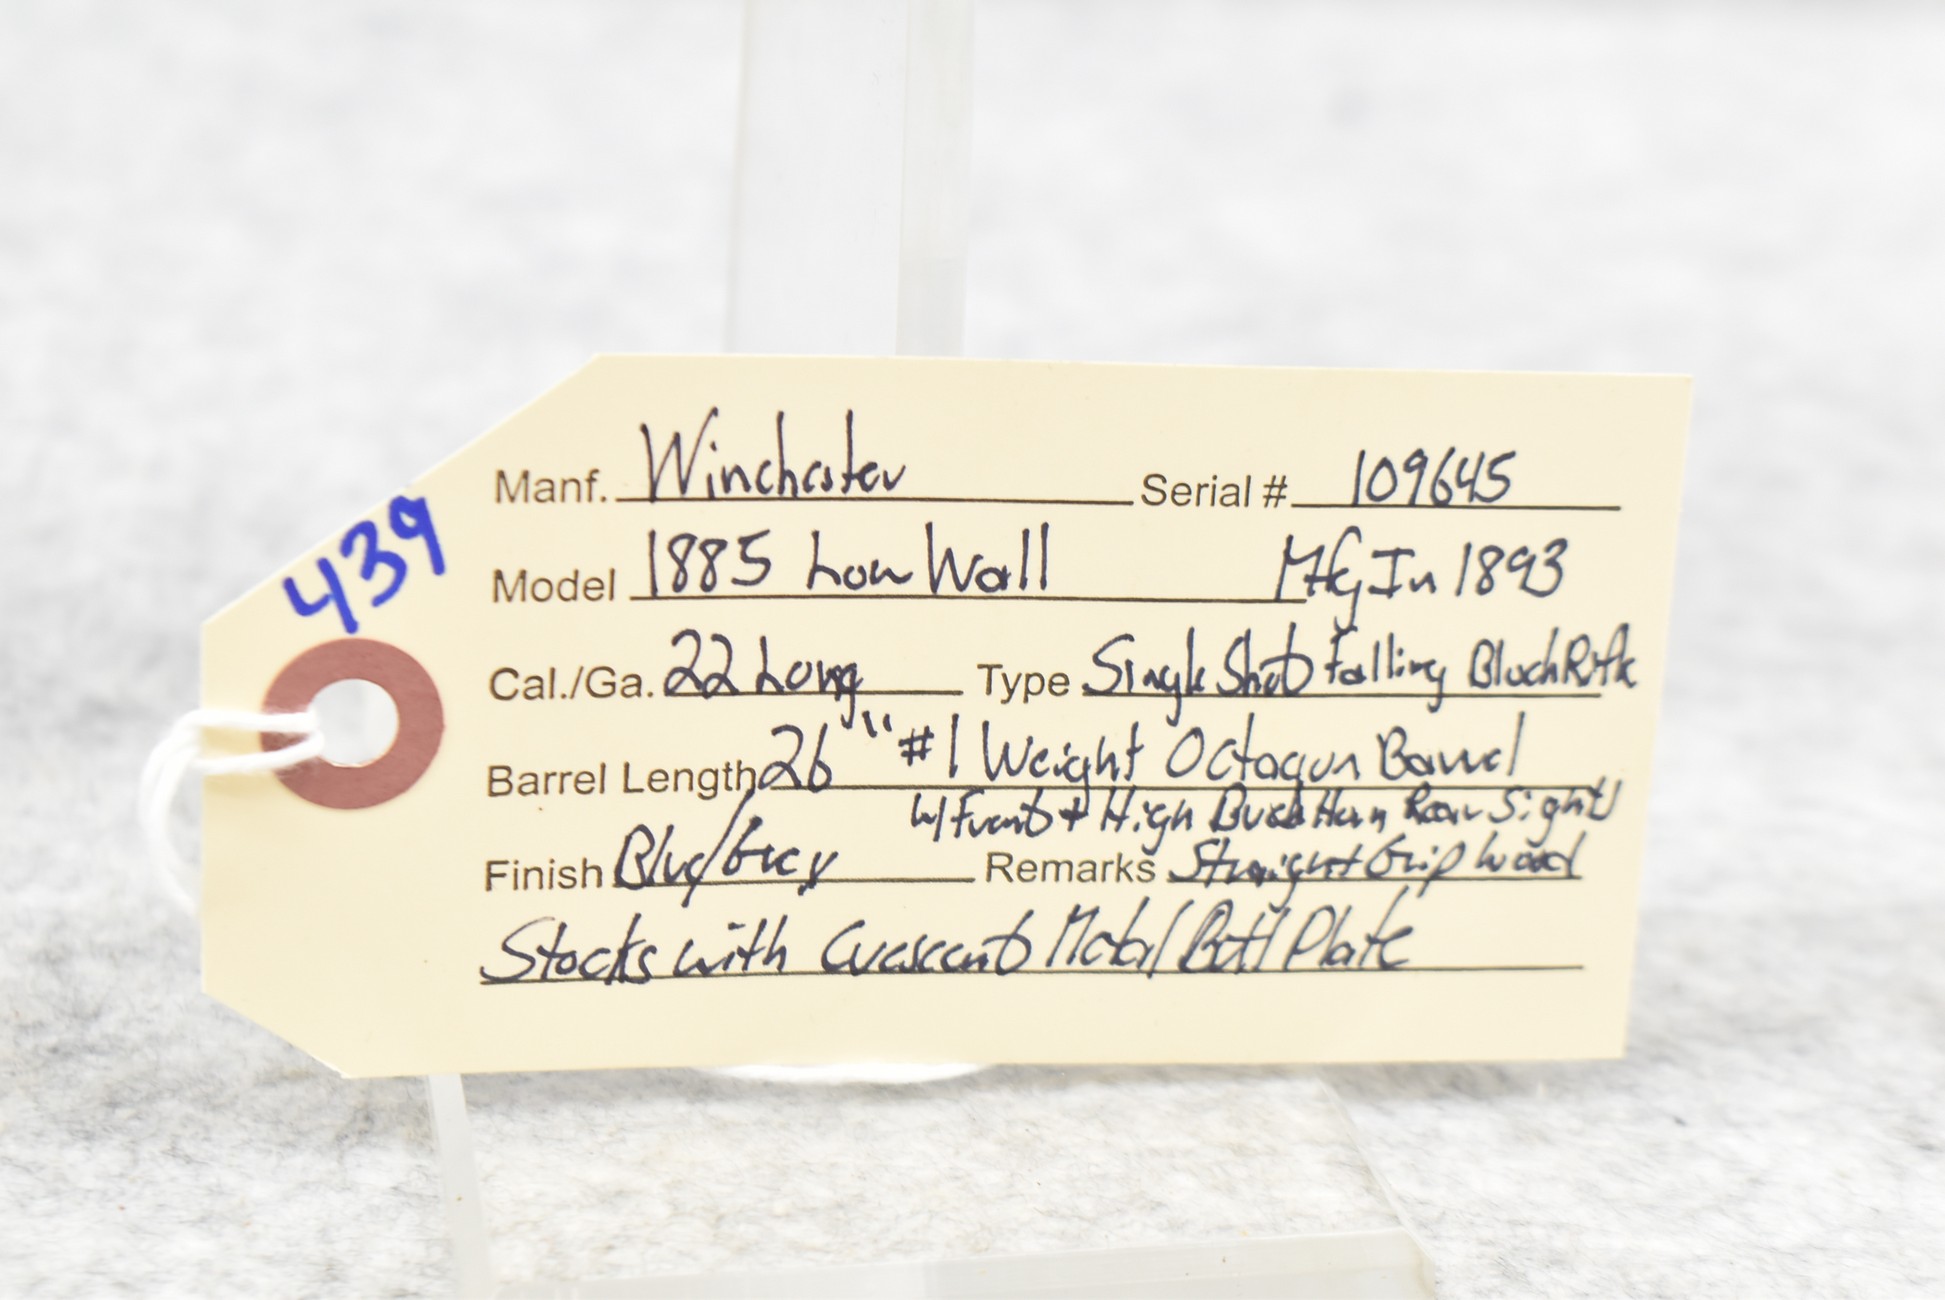 439
Manf. Winchester Serial # 109645
Model 1885 Low Wall Mfg In 1893
Cal./Ga. 22 Long Type Single Shot Falling Block Rifle
Barrel Length 26" #1 Weight Octagon Barrel
w/ Front + High Buck Horn Rear Sight
Finish Blue/Grey Remarks Straight Grip Wood
Stocks with Crescent Metal Butt Plate